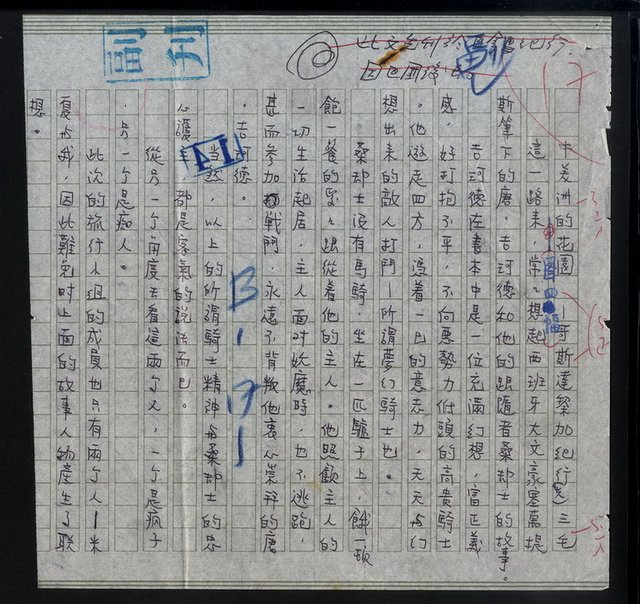 副刊
中美洲的花園—哥斯達黎加紀行 三毛
這一路來，常常想起西班牙大文豪塞萬提
斯筆下的唐·吉珂德和他的跟隨者桑却士的故事。
吉珂德在書本中是一位充滿幻想，富正義
感，好打抱不平，不向惡勢力低頭的高貴騎士
。他遊走四方，憑着一己的意志力，天天与幻
想出來的敵人打鬥—所謂夢幻騎士也。
桑却士没有馬騎，坐在一匹驢子上，餓一頓
飽一餐的 跟從着他的主人。他照顧主人的
一切生活起居，主人面对妖魔時，也不逃跑，
甚而参加戰鬥，永遠不背叛他衷心崇拜的唐
·吉珂德。
当然，以上的所謂騎士精神与桑却士的忠
心護主，都是客氣的說法而已。
從另一个角度去看這兩个人，一个是瘋子
，另一个是痴人。
此次的旅行小组的成員也只有兩个人—米
夏与我，因此難免对上面的故事人物產生了联
想。